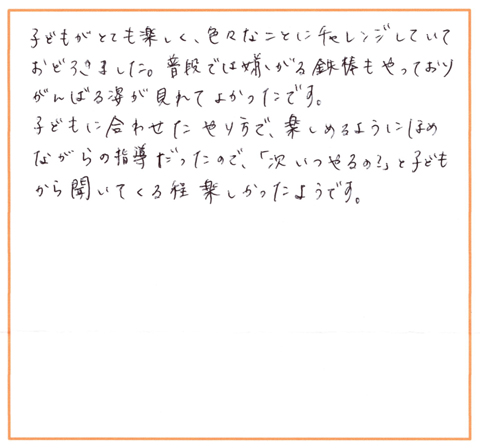 子どもがとても楽しく、色々なことにチャレンジしていて
おどろきました。普段では嫌がる鉄棒もやっており
がんばる姿が見れてよかったです。
子どもに合わせたやり方で、楽しめるようにほめ
ながらの指導だったので、「次いつやるの?」と子ども
から聞いてくる程楽しかったようです。